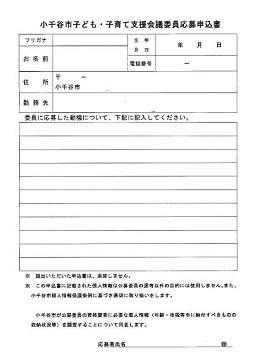 小千谷市子ども・子育て支援会議委員応募申込書
フリガナ
生年月日
年 月 日
お名前
電話番号
ー
住所
〒 ー
小千谷市
勤務先
委員に応募した動機について、下記に記入してください。
※ 提出いただいた申込書は、返却しません。
※ この申込書に記載された個人情報は公募委員の選考以外の目的には使用しません。また、
小千谷市個人情報保護条例に基づき適切に取り扱いをします。
小千谷市が公募委員の資格審査に必要な個人情報（年齢・市税等市に納付すべきものの
収納状況等）を調査することについて同意します。
応募者氏名 ㊞